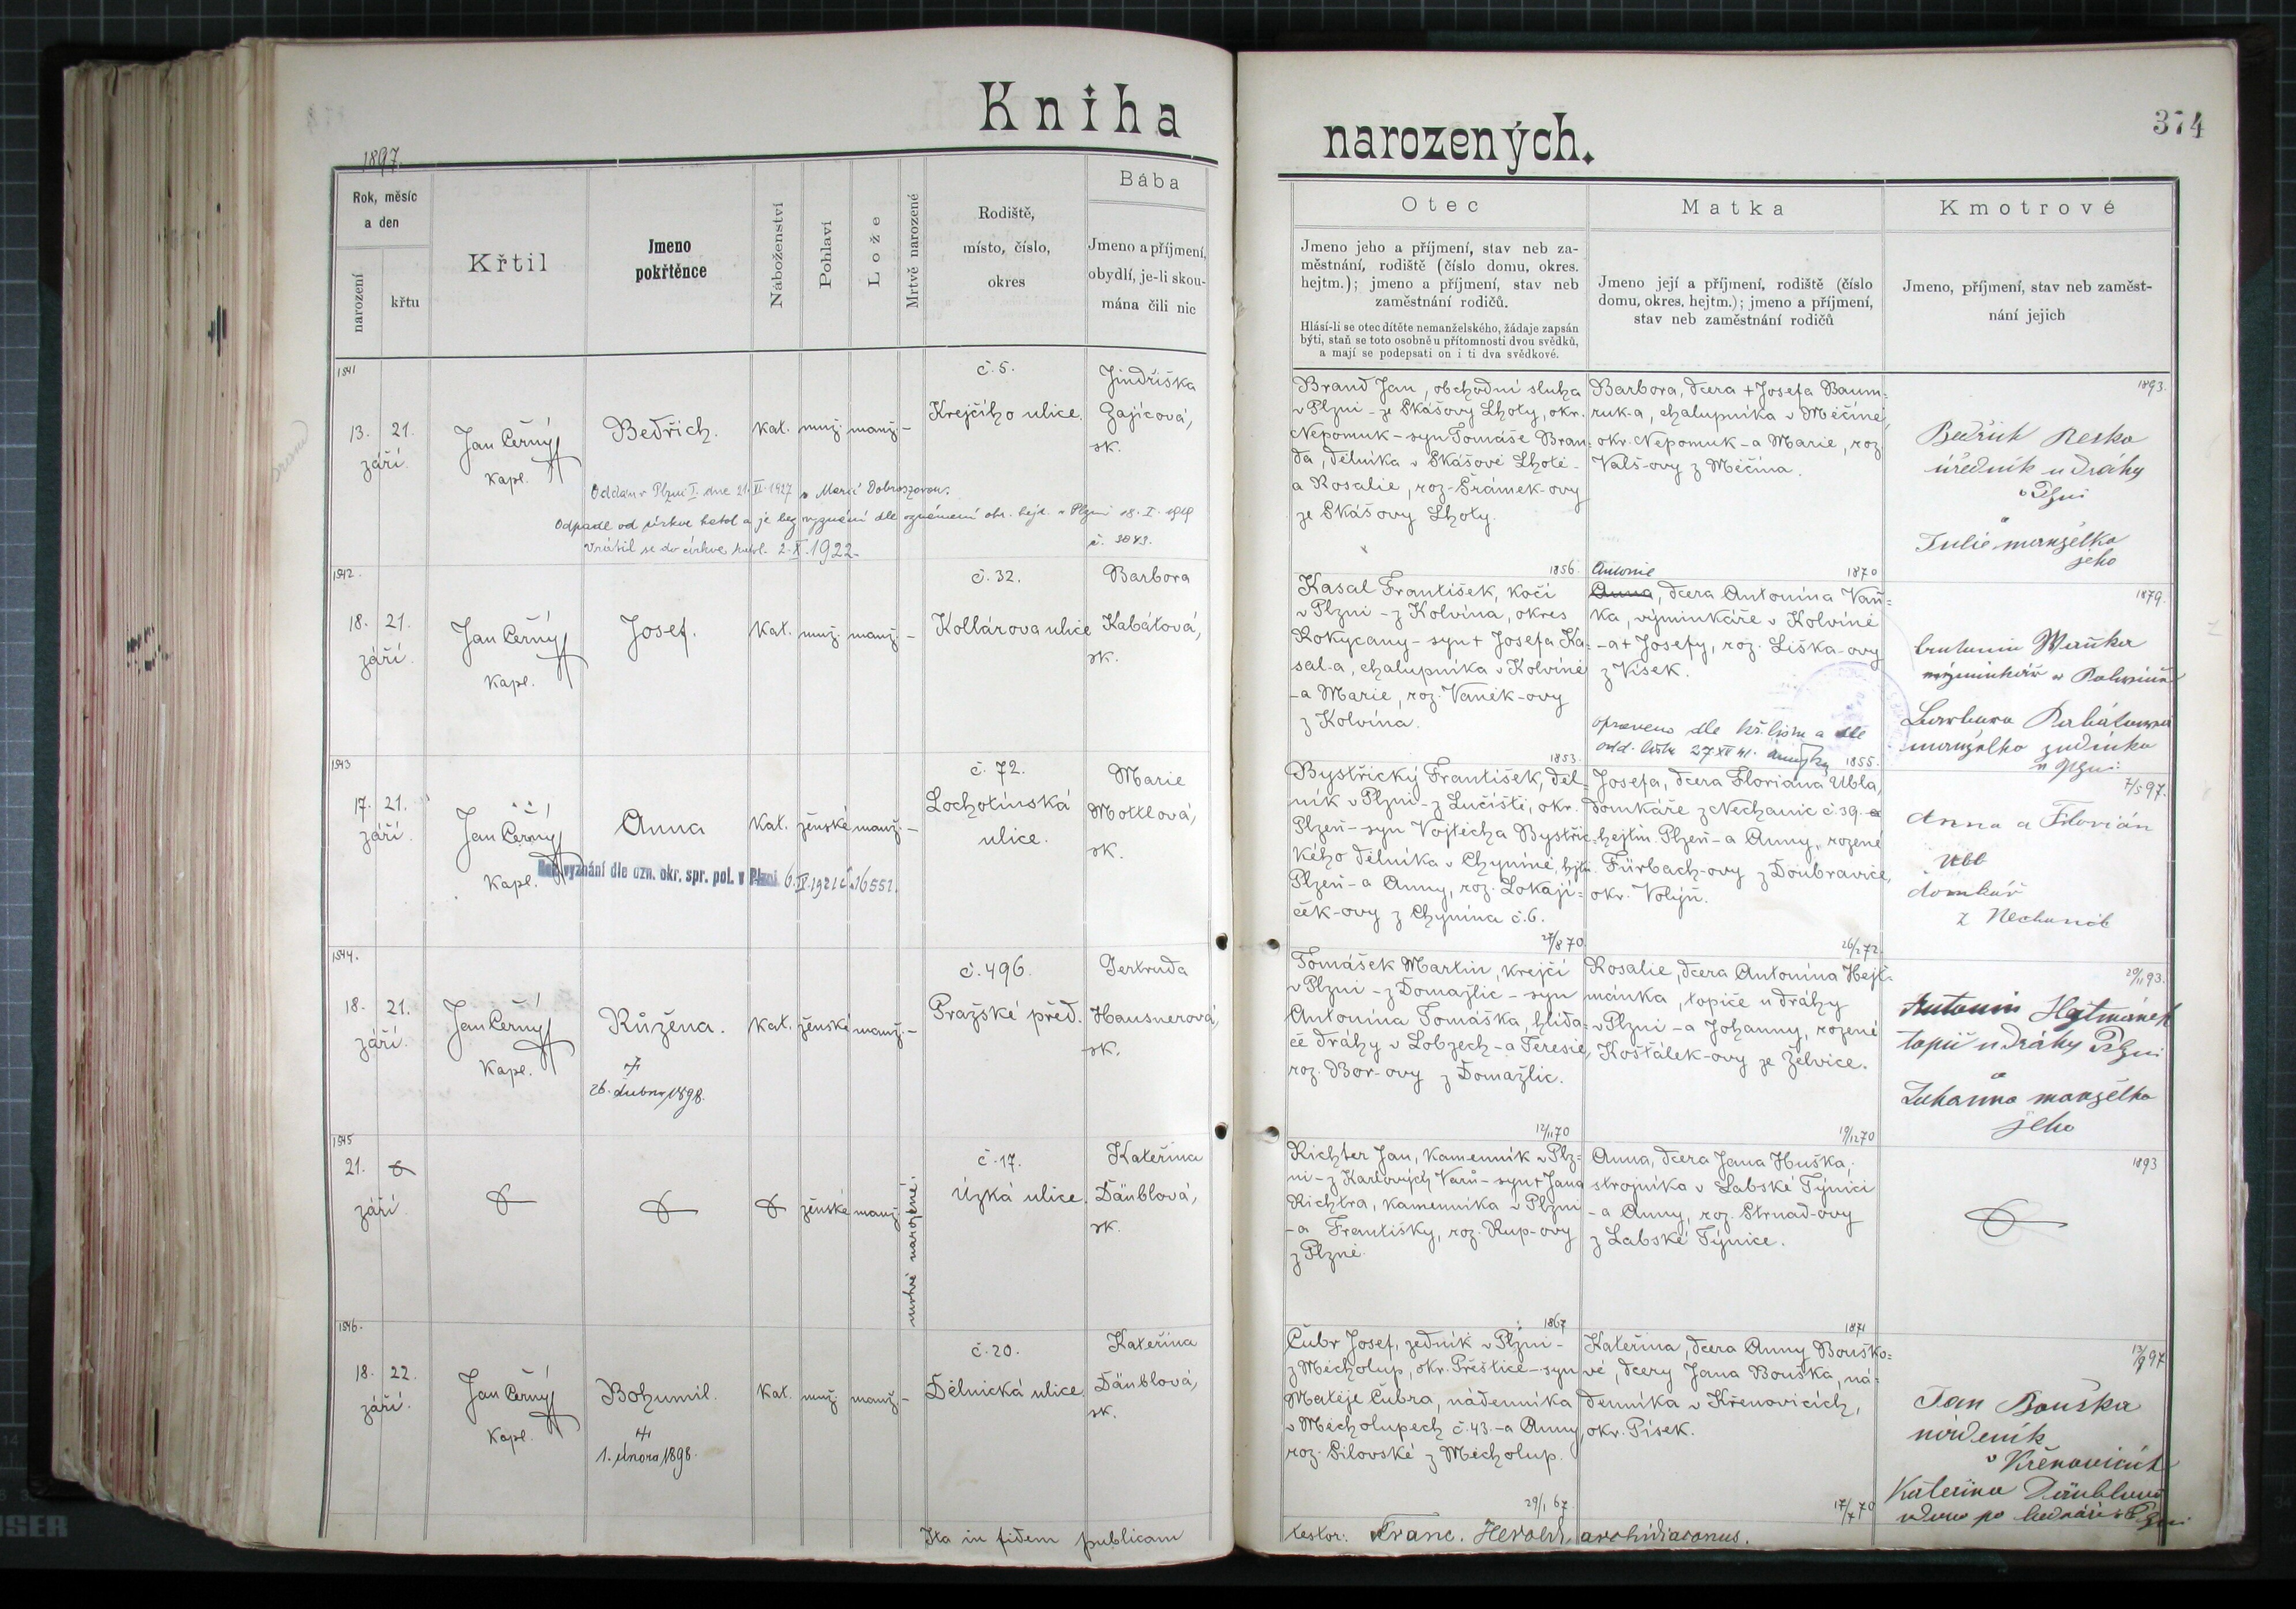 Kniha
narozených.
374
1897.
Rok, měsíc
a den
narození
křtu
Křtil
Jmeno
pokřtěnce
Náboženství
Pohlaví
Lože
Mrtvě narozené
Rodiště,
místo, číslo,
okres
Bába
Jmeno a příjmení,
obydlí, je-li skou-
mána čili nic
Otec
Jmeno jeho a příjmení, stav neb za-
městnání, rodiště (číslo domu, okres.
hejtm.); jmeno a příjmení, stav neb
zaměstnání rodičů.
Hlásí-li se otec dítěte nemanželského, žádaje zapsán
býti, staň se toto osobně u přítomnosti dvou svědků,
a mají se podepsati on i ti dva svědkové.
Matka
Jmeno její a příjmení, rodiště (číslo
domu, okres. hejtm.); jmeno a příjmení,
stav neb zaměstnání rodičů
Kmotrové
Jmeno, příjmení, stav neb zaměst-
nání jejich
1541
13. 21.
září.
Jan Černý
kapl.
Bedřich.
kat. muž. manž. -
č. 5.
Krejčího ulice.
Jindřiška
Zajícová,
zk.
Oddán v Plzni I. dne 21. II. 1927 s Marií Dobroszovou.
Odpadl od církve katol a je bez vyznání dle oznámení okr. hejt. v Plzni 18. I. 1919
č. 3843.
Vrátil se do církve katol. 2. X. 1922.
Brand Jan, obchodní sluha
v Plzni - ze Skášovy Lhoty, okr.
Nepomuk - syn Tomáše Bran-
da, dělníka v Skášově Lhotě -
a Rosalie, roz. Šrámek-ovy
ze Skášovy Lhoty.
1856.
Barbora, dcera + Josefa Baum-
ruk-a, chalupníka v Měčíně,
okr. Nepomuk - a Marie, roz.
Valš-ovy z Měčína.
1870
1893.
Bedřich Reska
úředník u dráhy
v Plzni
a
Julie manželka
jeho
1542.
18. 21.
září.
Jan Černý
kapl.
Josef.
kat. muž. manž. -
č. 32.
Kollárova ulice
Barbora
Kabátová,
zk.
Kasal František, kočí
v Plzni - z Kolvína, okres
Rokycany - syn + Josefa Ka-
sal-a, chalupníka v Kolvíně
- a Marie, roz. Vaněk-ovy
z Kolvína.
1853.
Antonie
Anna, dcera Antonína Vaň-
ka, výminkáře v Kolvíně
- a + Josefy, roz. Liška-ovy
z Vísek.
opraveno dle kř. listu a dle
odd. listu 27 XII 41.
1855.
1879.
Antonín Waňka
výminkář v
Barbora Kabátowá
manželka zedníka
v Plzni
1543
17. 21.
září.
Jan Černý
kapl.
Anna
kat. ženské manž. -
č. 72.
Lochotínská
ulice.
Marie
Mottlová,
zk.
Bez vyznání dle ozn. okr. spr. pol. v Plzni 6. IV. 1921 č. 16551.
Bystřický František, děl-
ník v Plzni - z Lučiště, okr.
Plzeň - syn Vojtěcha Bystřic-
kého dělníka v Chyníně, hejtm.
Plzeň - a Anny, roz. Lokají-
ček-ovy z Chynína č. 6.
27/8 70
Josefa, dcera Floriana Ubla,
domkáře z Nechanic č. 39.
hejtm. Plzeň - a Anny, rozené
Fürbach-ovy z Doubravice,
okr. Volyň.
26/2 72.
7/5 97.
Anna a Florián
Ubl
domkář
z Nechanic
1544.
18. 21.
září.
Jan Černý
kapl.
Růžena.
†
26. dubna 1898.
kat. ženské manž. -
č. 496.
Pražské před.
Gertruda
Hausnerová,
zk.
Tomášek Martin, krejčí
v Plzni - z Domažlic - syn
Antonína Tomáška, hlída-
če dráhy v Lobzech - a Teresie,
roz. Bor-ovy z Domažlic.
12/11 70
Rosalie, dcera Antonína Hejt-
mánka, topiče u dráhy
v Plzni - a Johanny, rozené
Košťálek-ovy ze Želvice.
19/12 70
29/11 93.
Antonin Hejtmánek
topič u dráhy Plzni
a
Johanna manželka
jeho
1545
21.
září
ženské manž.
mrtvě narozené.
č. 17.
Úzká ulice.
Kateřina
Däublová,
zk.
Richter Jan, kamenník v Plz-
ni - z Karlových Varů - syn + Jana
Richtra, kamenníka v Plzni
- a Františky, roz. Kup-ovy
z Plzně.
1867
Anna, dcera Jana Huška,
strojníka v Labské Týnici
- a Anny, roz. Strnad-ovy
z Labské Týnice.
1871
1893
1546.
18. 22.
září.
Jan Černý
kapl.
Bohumil.
†
1. února 1898.
kat. muž. manž. -
č. 20.
Dělnická ulice.
Kateřina
Däublová,
zk.
Čubr Josef, zedník v Plzni -
z Měcholup, okr. Přeštice - syn
Matěje Čubra, nádenníka
v Měcholupech č. 43. - a Anny,
roz. Silovské z Měcholup.
29/1 67.
Kateřina, dcera Anny Bouško-
vé, dcery Jana Bouška, ná-
denníka v Křenovicích,
okr. Písek.
17/7 70
13/9 97
Jan Bouška
nádeník
v Křenovicích
Kateřina Däublová
vdova po bednáři v Plzni
Ita in fidem publicam
testor: Franc. Herold, archidiaconus.